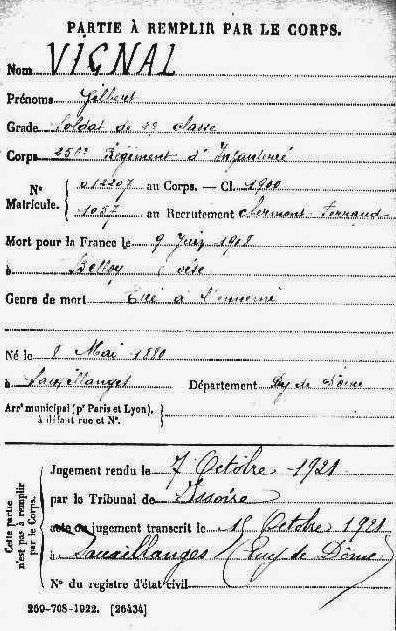 PARTIE À REMPLIR PAR LE CORPS.
Nom VIGNAL
Prénoms Gilbert
Grade Soldat de 2e classe
Corps 250e Régiment d'Infanterie
N° Matricule. 012207 au Corps. — Cl. 1900
1057 au Recrutement Clermont-Ferrand
Mort pour la France le 9 Juin 1918
à Belloy Oise
Genre de mort Tué à l'ennemi
Né le 8 Mai 1880
à Sauxillanges Département Puy de Dôme
Arrt municipal (pr Paris et Lyon),
à défaut rue et N°.
Cette partie n'est pas à remplir par le Corps.
Jugement rendu le 7 Octobre 1921
par le Tribunal de Issoire
acte ou jugement transcrit le 15 Octobre 1921
à Sauxillanges (Puy de Dôme)
N° du registre d'état civil
269-708-1922. [26434]